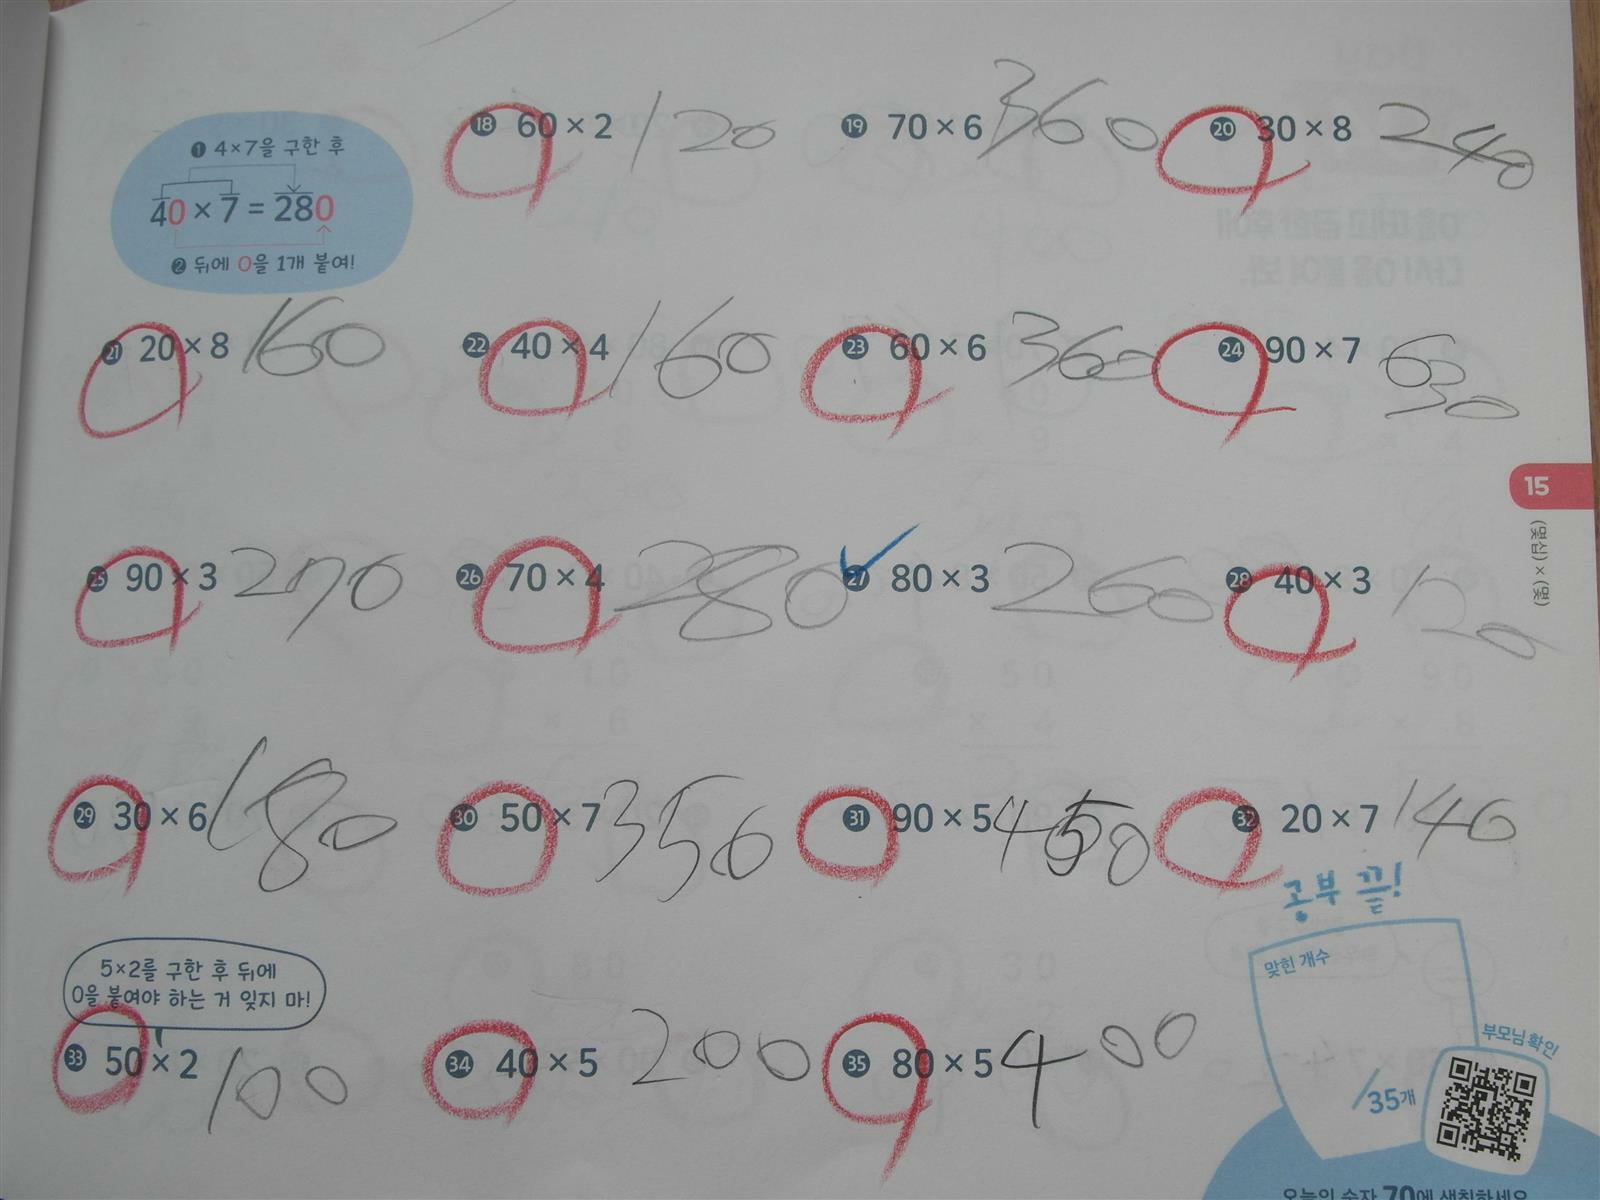 ❶ 4×7을 구한 후
40 × 7 = 280
❷ 뒤에 0을 1개 붙여!
18 60 × 2 120
19 70 × 6 360
20 30 × 8 240
21 20 × 8 160
22 40 × 4 160
23 60 × 6 360
24 90 × 7 630
25 90 × 3 270
26 70 × 4 280
27 80 × 3 260
28 40 × 3 120
29 30 × 6 180
30 50 × 7 350
31 90 × 5 450
32 20 × 7 140
15
(몇십) × (몇)
5×2를 구한 후 뒤에
0을 붙여야 하는 거 잊지 마!
33 50 × 2 100
34 40 × 5 200
35 80 × 5 400
공부 끝!
맞힌 개수
/35개
부모님 확인
오늘의 숫자 70에 색칠하세요